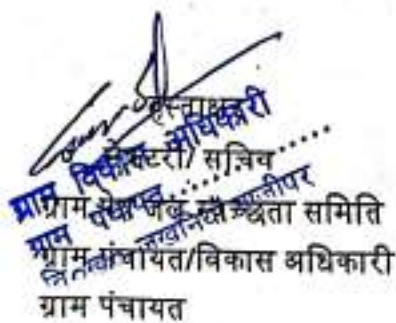 हस्ताक्षर
सेक्रेटरी/ सचिव
ग्राम पेय जल स्वच्छता समिति
ग्राम पंचायत/विकास अधिकारी
ग्राम पंचायत
ग्राम विकास अधिकारी
ग्राम पंचायत